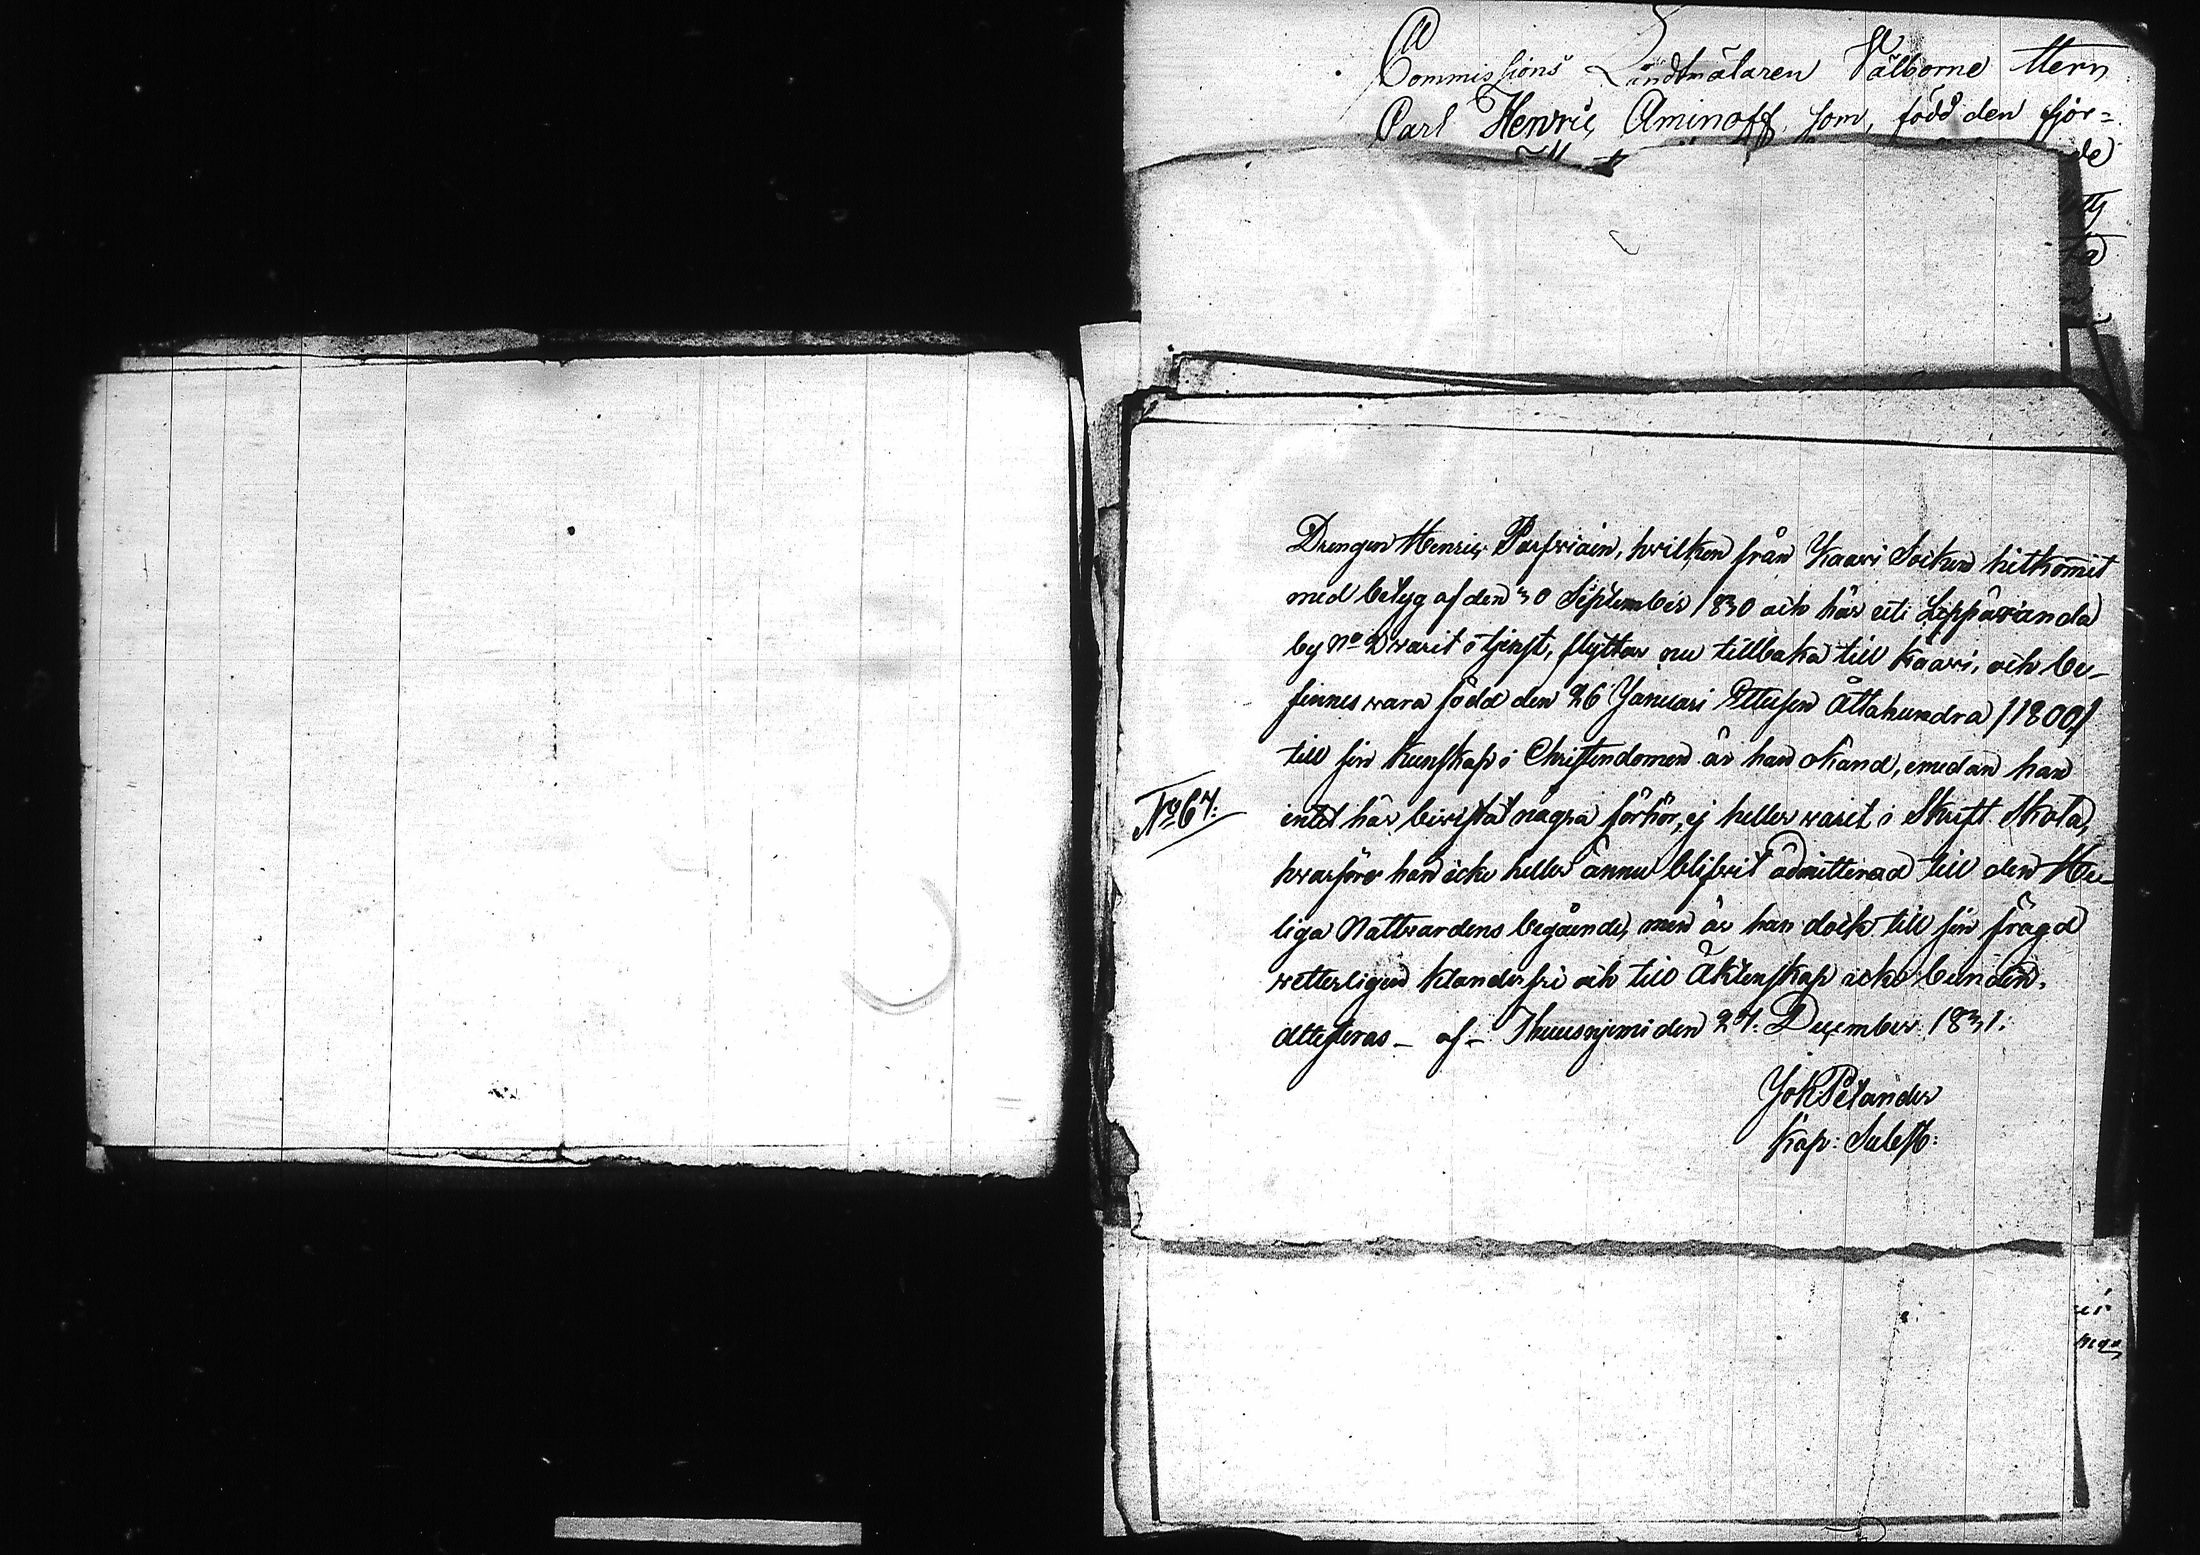 Commissions Landtmätaren Välborne Herr
Carl Henric Aminoff, som, född den fjor=
de
Drengen Henric Parfviain, hvilken från Kaavi Socken hitkommit
med betyg af den 30 September 1830 och här uti Leppäranda
by No 2 varit i tjenst, flyttar nu tillbaka till Kaavi, och be-
finnes vara född den 26 Januari Ettusen Åttahundra /1800/
till sin kunskap i Christendomen är han okänd, emedan han
intet här bivistat några förhör, ej heller varit i Skrift Skola,
hvarföre han icke heller ännu blifvit admitterad till den He-
liga Nattvardens begående, men är han dock till sin frägd
vetterligen klanderfri och till Äktenskap icke bunden.
No 67:
attesteras - af - Thuusnjemi den 27. December 1831.
Joh Petander
Kap: Subst: